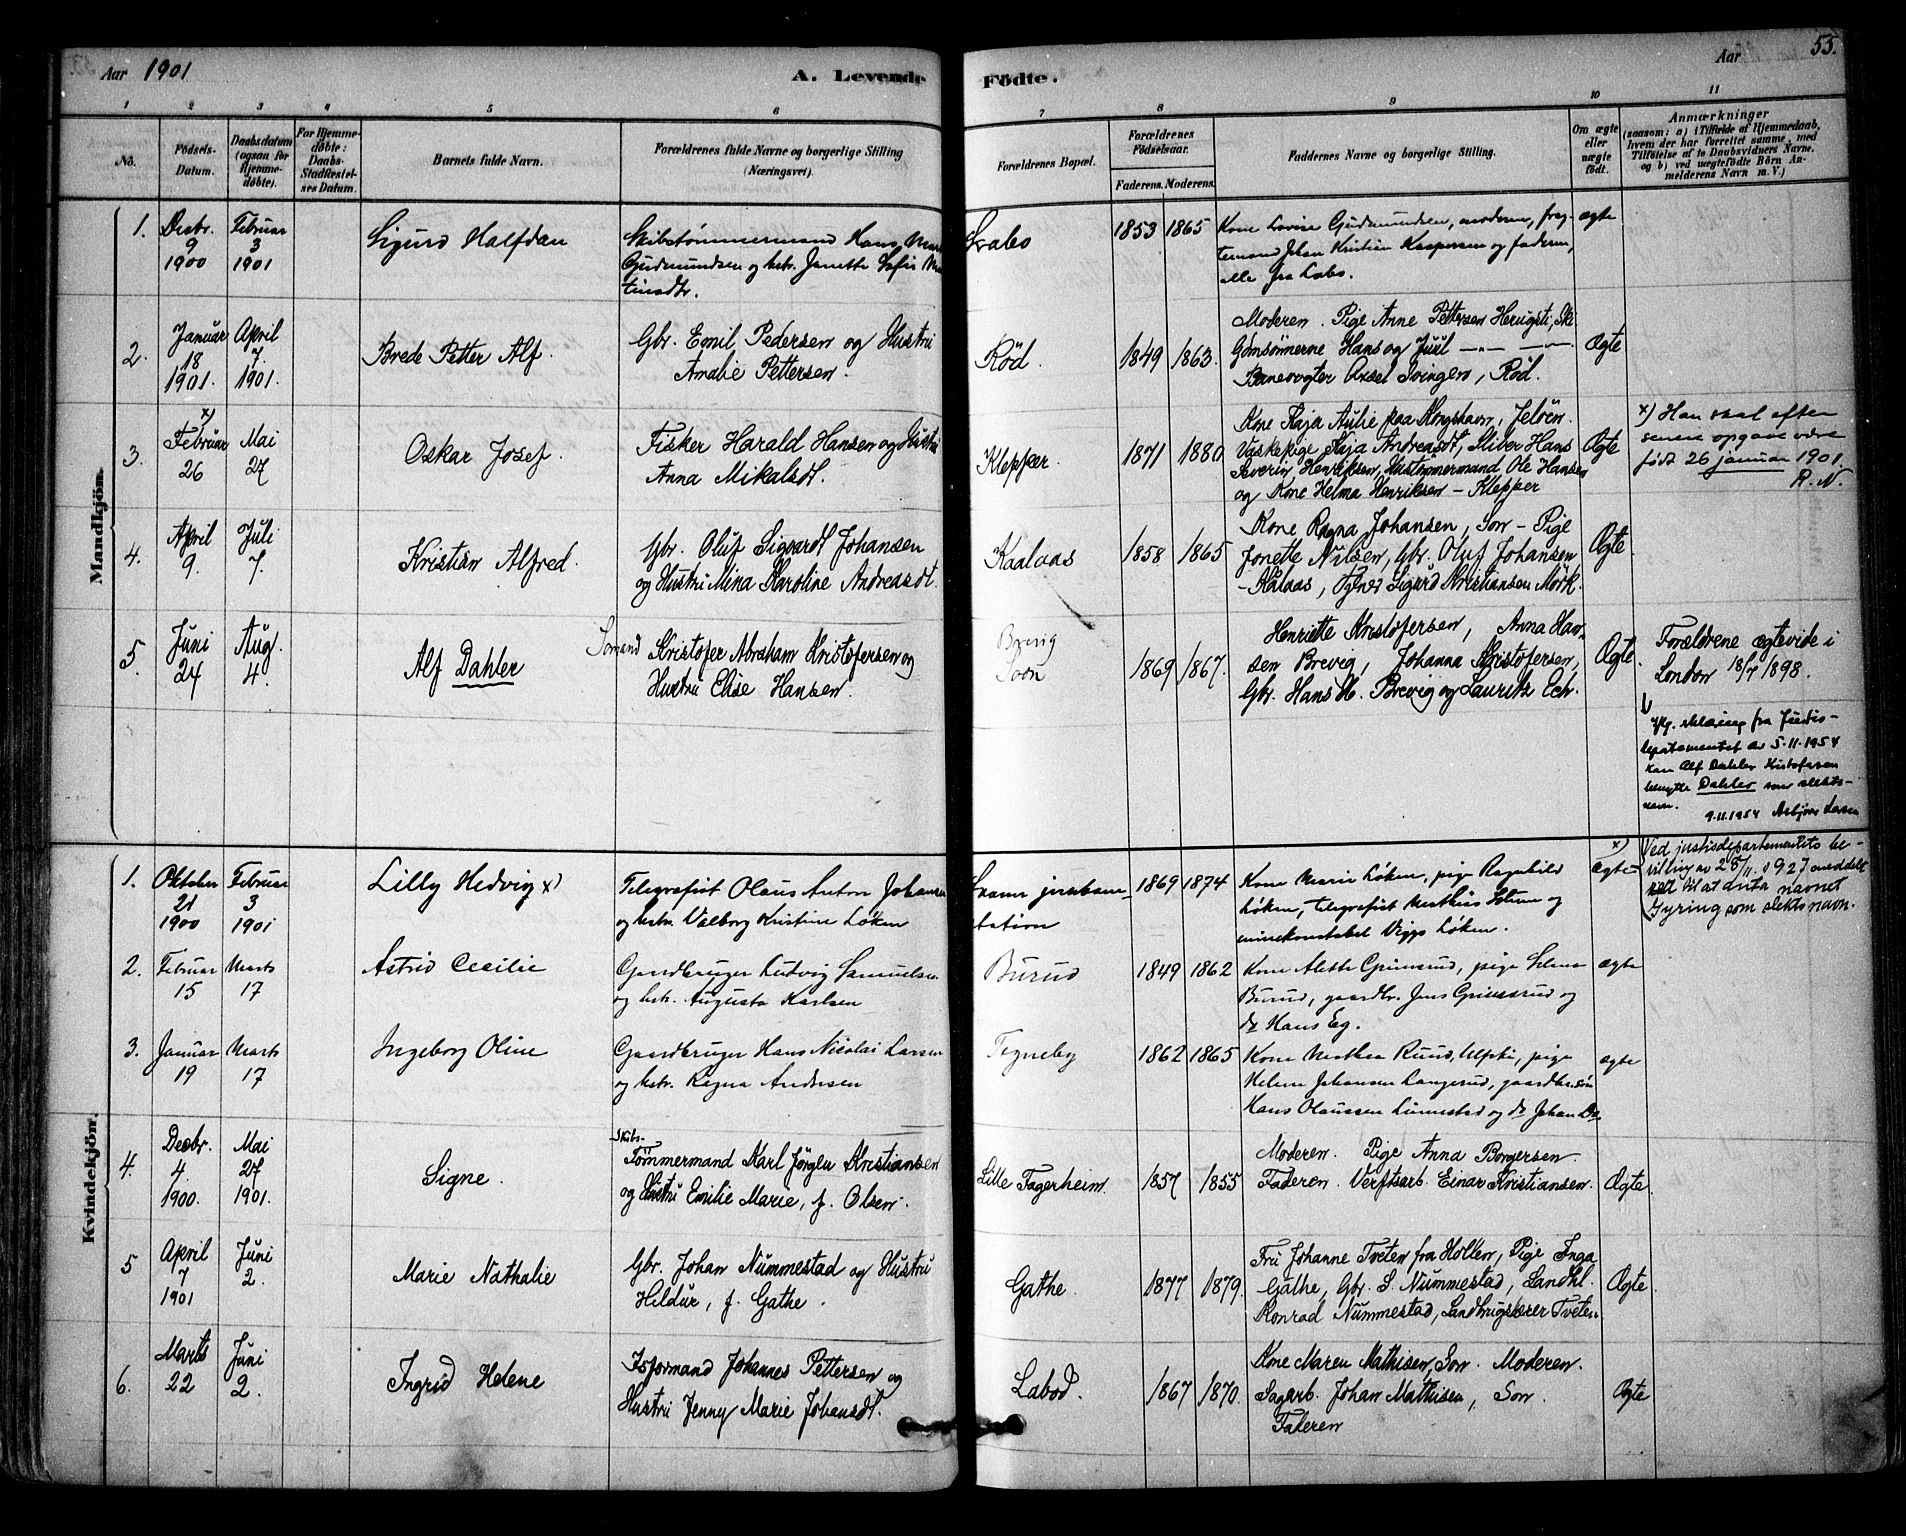 Aar 1901
A. Levende Födte.
Aar
55.
1 2 3 4 5 6 7 8 9 10 11
No.
Födsels-Datum.
Daabsdatum (ogsaa for Hjemmedöbte).
For Hjemmedöbte: Daabs-Stadfæstelses Datum.
Barnets fulde Navn.
Forældrenes fulde Navne og borgerlige Stilling (Næringsvei).
Forældrenes Bopæl.
Forældrenes Födselsaar.
Faderens. Moderens.
Faddernes Navne og borgerlige Stilling.
Om ægte eller uægte födt.
Anmærkninger
(saasom: a) i Tilfælde af Hjemmedaab,
hvem der har forrettet samme, med
Tilföielse af to Daabsvidners Navne,
og b) ved uægtefödte Börn Anmelderens Navn m. V.)
Mandkjön.
1. Decbr. 9 1900 Februar 3 1901
Sigurd Halfdan
Skibstømmermand Hans
Gudmundsen og hstr. Janette Sofie
tinsdtr.
Labo
1853 1865
Kone Lovise Gudmundsen, moderen, frag-
temand Johan Kristian Kaspersen og faderen,
alle fra Labo.
ægte
2. Januar 18 1901. April 7. 1901.
Brede Petter Alf.
Gbr. Emil Pedersen og Hustru
Amalie Pettersen.
Rød.
1849 1863.
Moderen. Pige Anne Pettersen
Gdmsønnerne Hans og Juul — „ — „ —
Banevogter Axsel Svingen, Rød.
Ægte
3. x) Februar 26 Mai 27
Oskar Josef.
Fisker Harald Hansen og Hustru
Anna Mikalsdt.
Klepper.
1871 1880
Kone Kaja Aulie paa Kongshavn, Jeløen.
Vaskepige Kaja Andreasdt, Sliber Hans
Severin Henriksen, Hustömmermand Ole Hansen
og Kone Helma Henriksen – Klepper
Ægte
x) Han skal efter
senere opgave være
født 26 januar 1901.
R. N.
4. April 9. Juli 7.
Kristian Alfred.
Gbr. Oluf Sigvardt Johansen
og Hustru Mina Karoline Andreasdt.
Kaalaas
1858 1865
Kone Ragna Johansen, Son – Pige
Jonette Nilsen, Gbr. Oluf Johansen
– Kaalaas, Sigurd Kristiansen Mörk.
Ægte
5. Juni 24 Aug. 4.
Alf Dahler
Sømand Kristofer Abraham Kristofersen og
Hustru Elise Hansen.
Brevig
Soon
1869 1867.
Henriette Kristofersen, Anna Han-
sen Brevig, Johanna Kristofersen,
Gbr. Hans M. Brevig og Lauritz Chr.
Ægte.
Forældrene ægteviede i
London 18/7 1898.
Ifg. erklæring fra Justis-
departementet av 5.11.1954
kan Alf Dahler Kristofersen
benytte Dahler som slekts-
navn.
9.11.1954 Asbjørn Larsen
Kvindekjön.
1. Oktober 21 1900 Februar 3 1901
Lilly Hedvig x)
Telegrafist Olaus Anton Johansen
og hstr. Valborg Kristine Løken
jernbane-
station
1869 1874
Kone Marie Løken, pige Ragnhild
Løken, telegrafist Mathias Stene og
minekonstabel Viggo Løken.
x) ægte
Ved justisdepartementets be-
villing av 28/11 1927 meddelt
ret til at anta navnet
Fyring som slektsnavn.
2. Februar 15 Marts 17
Astrid Cecilie
Gaardbruger Ludvig Samuelsen
og hstr. Augusta Karlsen
Burud
1849 1862
Kone Alette Grimsrud, pige Selma
Burud, gaardbr. Jens Grimsrud og
do Hans Eg.
ægte
3. Januar 19 Marts 17
Ingeborg Oline
Gaardbruger Hans Nicolai Larsen
og hstr. Ragna Andersen
Tegneby
1862 1865
Kone Mathea Ruud, pige
Helene Johansen Langerud, gaardbr.søn
Hans Olaussen Linnestad og do Johan Do
ægte
4. Decbr. 4. 1900. Mai 27 1901.
Signe.
Skibs-
Tømmermand Karl Jörgen Kristiansen
og Hustru Emilie Marie, f. Olsen.
Lille Fagerheim.
1857 1855
Moderen. Pige Anna Borgersen
Faderen. Verftsarb. Einar Kristiansen.
Ægte
5 April 7 1901 Juni 2.
Marie Nathalie
Gbr. Johan Nümmestad og Hustru
Hildur, f. Gathe.
Gathe.
1877 1879.
Fru Johanne Tveten fra Hollen, Pige Inga
Gathe, Gbr. S. Nümmestad, Landhl.
Konrad Nümmestad, Landbrugslærer Tveten.
Ægte
6. Marts 22 Juni 2.
Ingrid Helene
Isformand Johannes Pettersen og
Hustru Jenny Marie Johansdt.
Labod.
1867 1870.
Kone Maren Mathisen, Son. Moderen.
Sagarb. Johan Mathisen, Son.
Faderen
Ægte